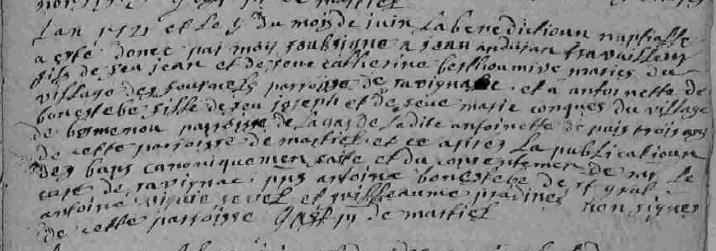 Lan 1721 et le 9 du mois de juin La benedictioun nuptialle
a esté donee par moy soubsigne a jean andujan travailleur
fils de feu jean et de feue catherine berthoumive maries du
village des fournels parroisse de savignac et a antoinette de
bonestebe fille de feu joseph et de feue marie conques du village
de parroisse de la gas de ladite antoinette de puis trois
de cette parroisse de martiel et ce apres La publicatioun
des bans canoniquement faite et du consentement de mr le
cure de savignac pns antoine bonestebe de st grat
antoine et guilheaume pradines non signes
de cette parroisse de martiel